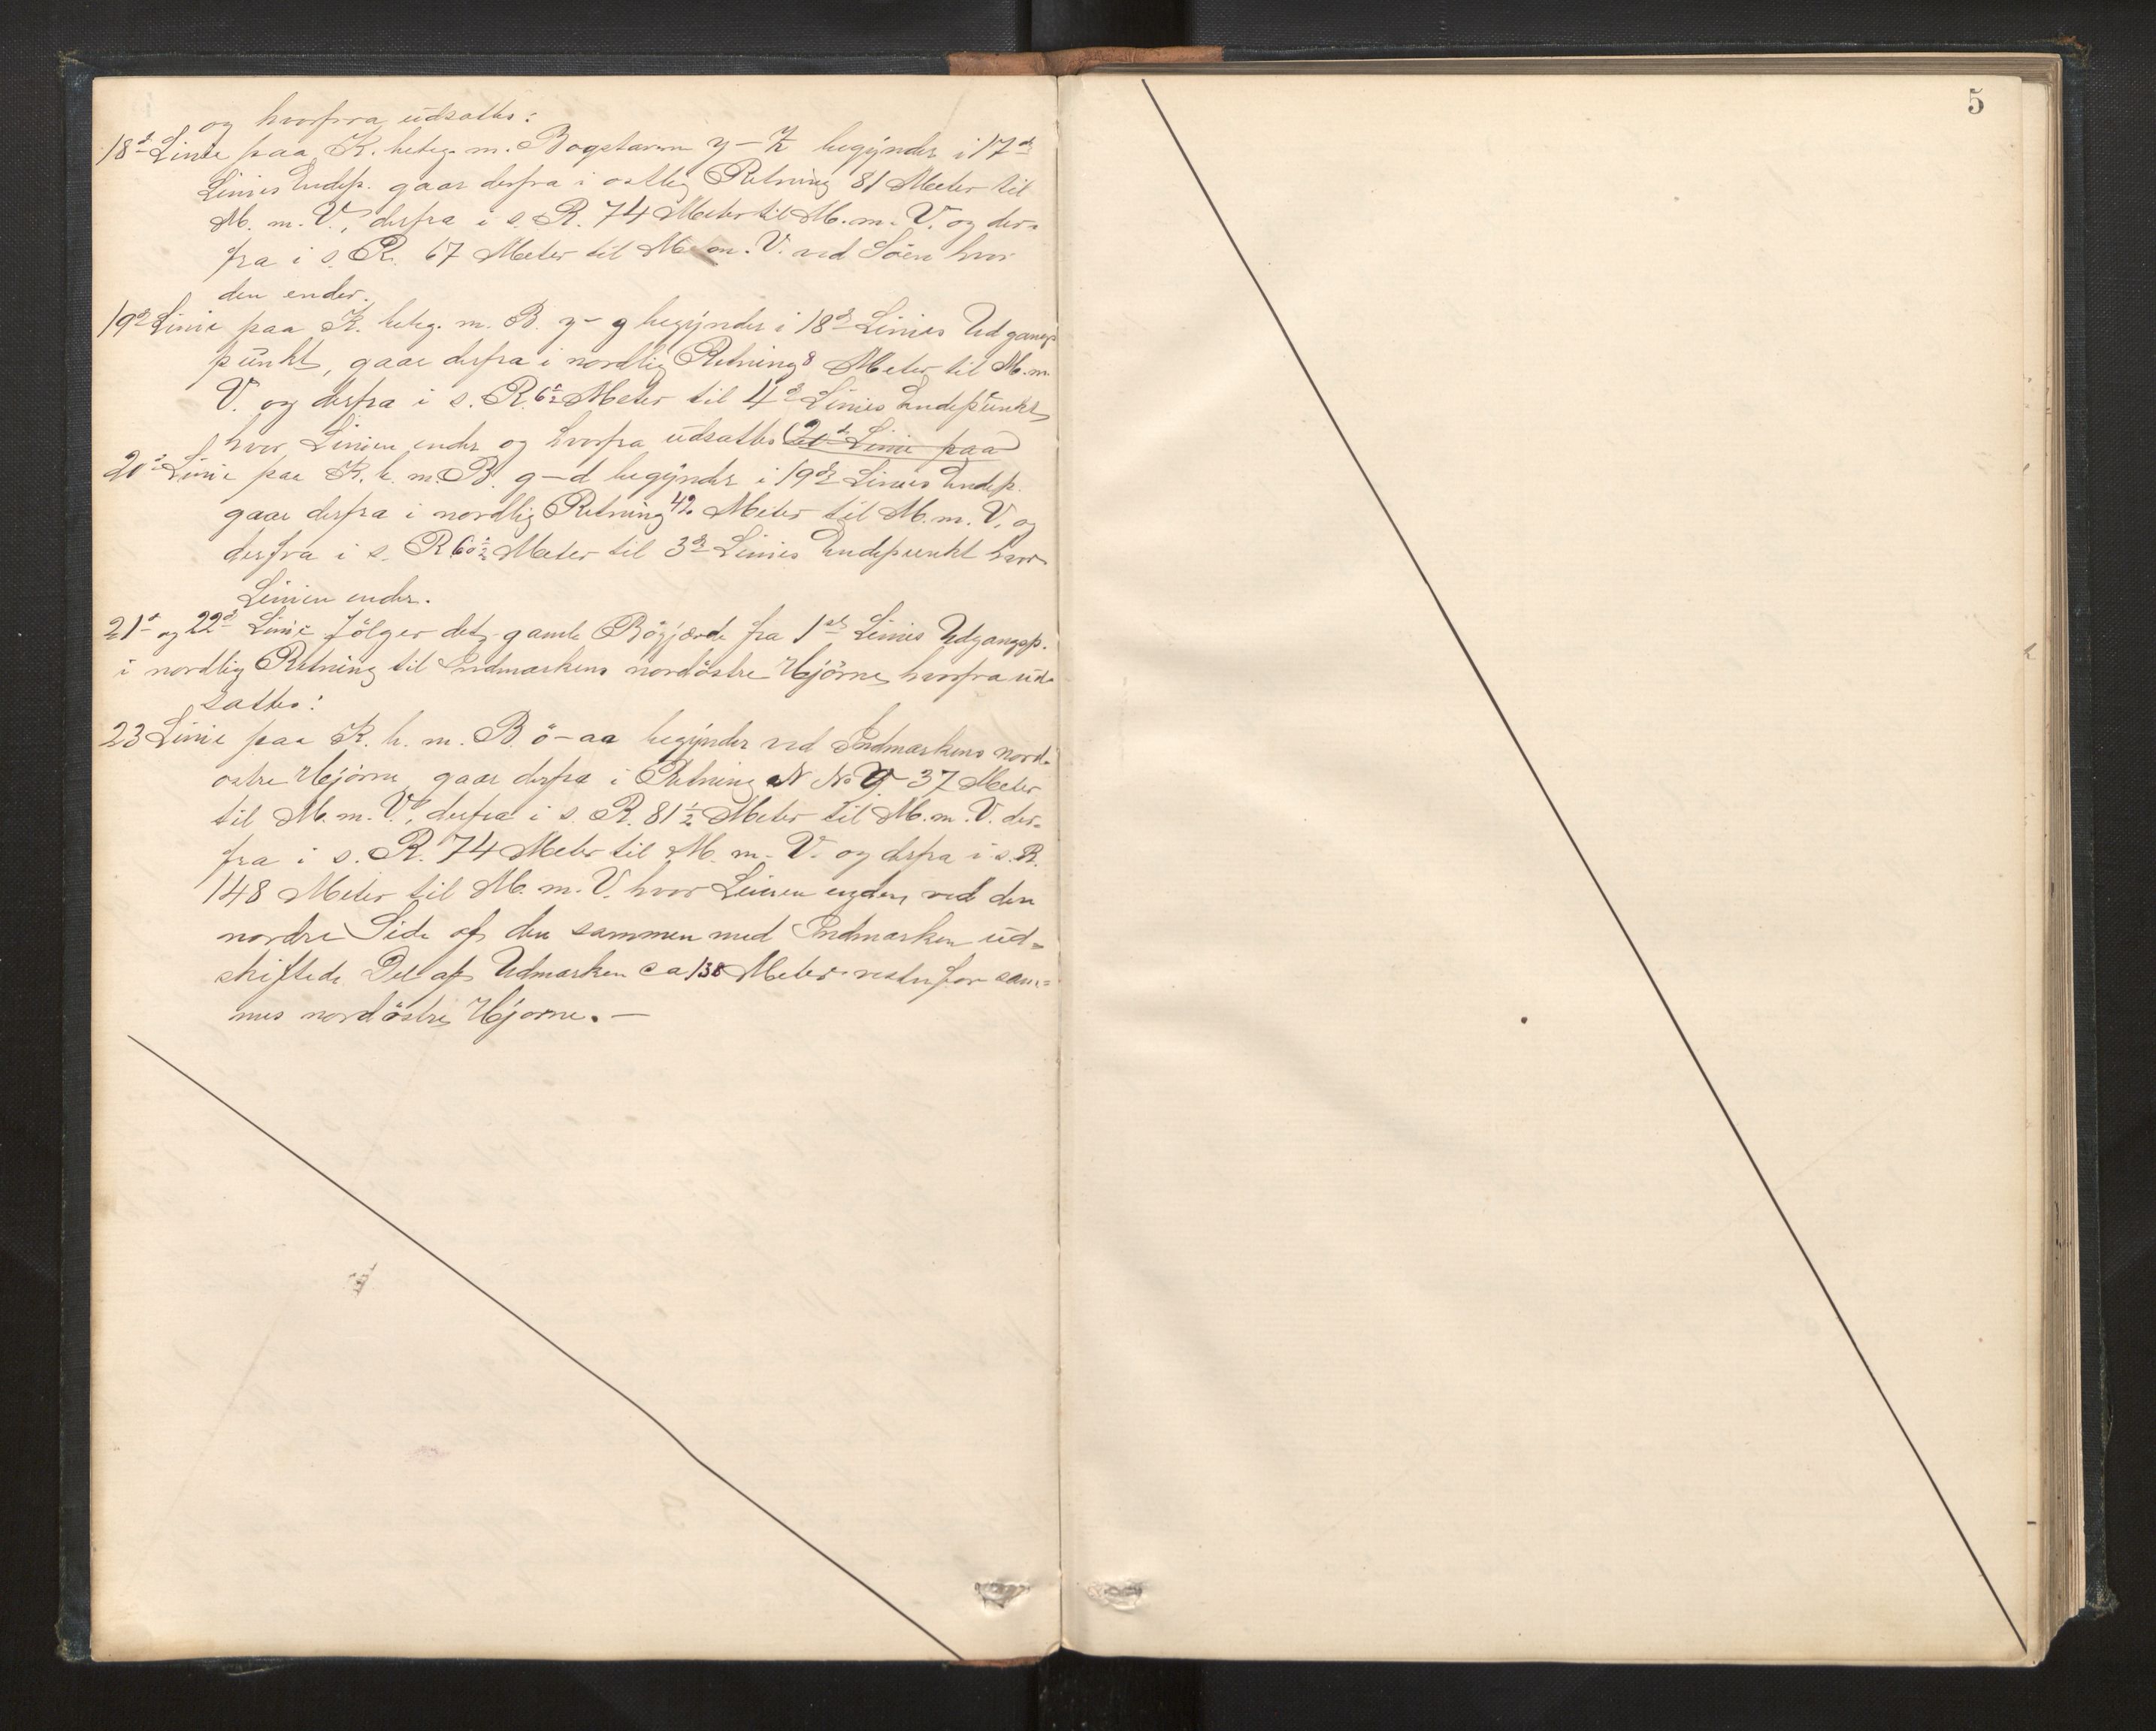 og hvorfra udsattes:
18de Linie paa K. beteg. m. Bogstaverne y–z begynder i 17de
Linies Endep. gaar derfra i ostlig Retning 81 Meter til
M. m. V., derfra i s. R. 74 Meter til M. m. V. og der-
fra i s. R. 67 Meter til M. m. V. ved Söen hvor
den ender.
19de Linie paa K. beteg. m. B. y–g begynder i 18de Linies Udgangs-
punkt, gaar derfra i nordlig Retning 8 Meter til M. m.
V. og derfra i s. R. Meter til 4de Linies Endepunkt
hvor Linien ender og hvorfra udsattes (20de Linie paa)
20de Linie paa K. b. m. B. g–d begynder i 19de Linies Endep.
gaar derfra i nordlig Retning 49 Meter til M. m. V. og
derfra i s. R 60½ Meter til 3de Linies Endepunkt hvor
Linien ender.
21de og 22de Linie fölger det gamle Bögjærde fra 1ste Linies Udgangsp.
i nordlig Retning til Indmarkens nordöstre Hjörne, hvorfra ud-
sattes:
23 Linie paa K. b. m. B. ö–aa begynder ved Indmarkens nord-
ostre Hjörne, gaar derfra i Retning N N V. 37 Meter
til M. m. V., derfra i s. R. 81½ Meter til M. m. V. der-
fra i s. R. 74 Meter til M. m. V. og derfra i s. R.
148 Meter til M. m. V. hvor Linien ender, ved den
nordre Side af den sammen med Indmarken ud-
skiftede Del af Udmarken ca 138 Meter vestenfor sam-
mes nordöstre Hjorne. —
5